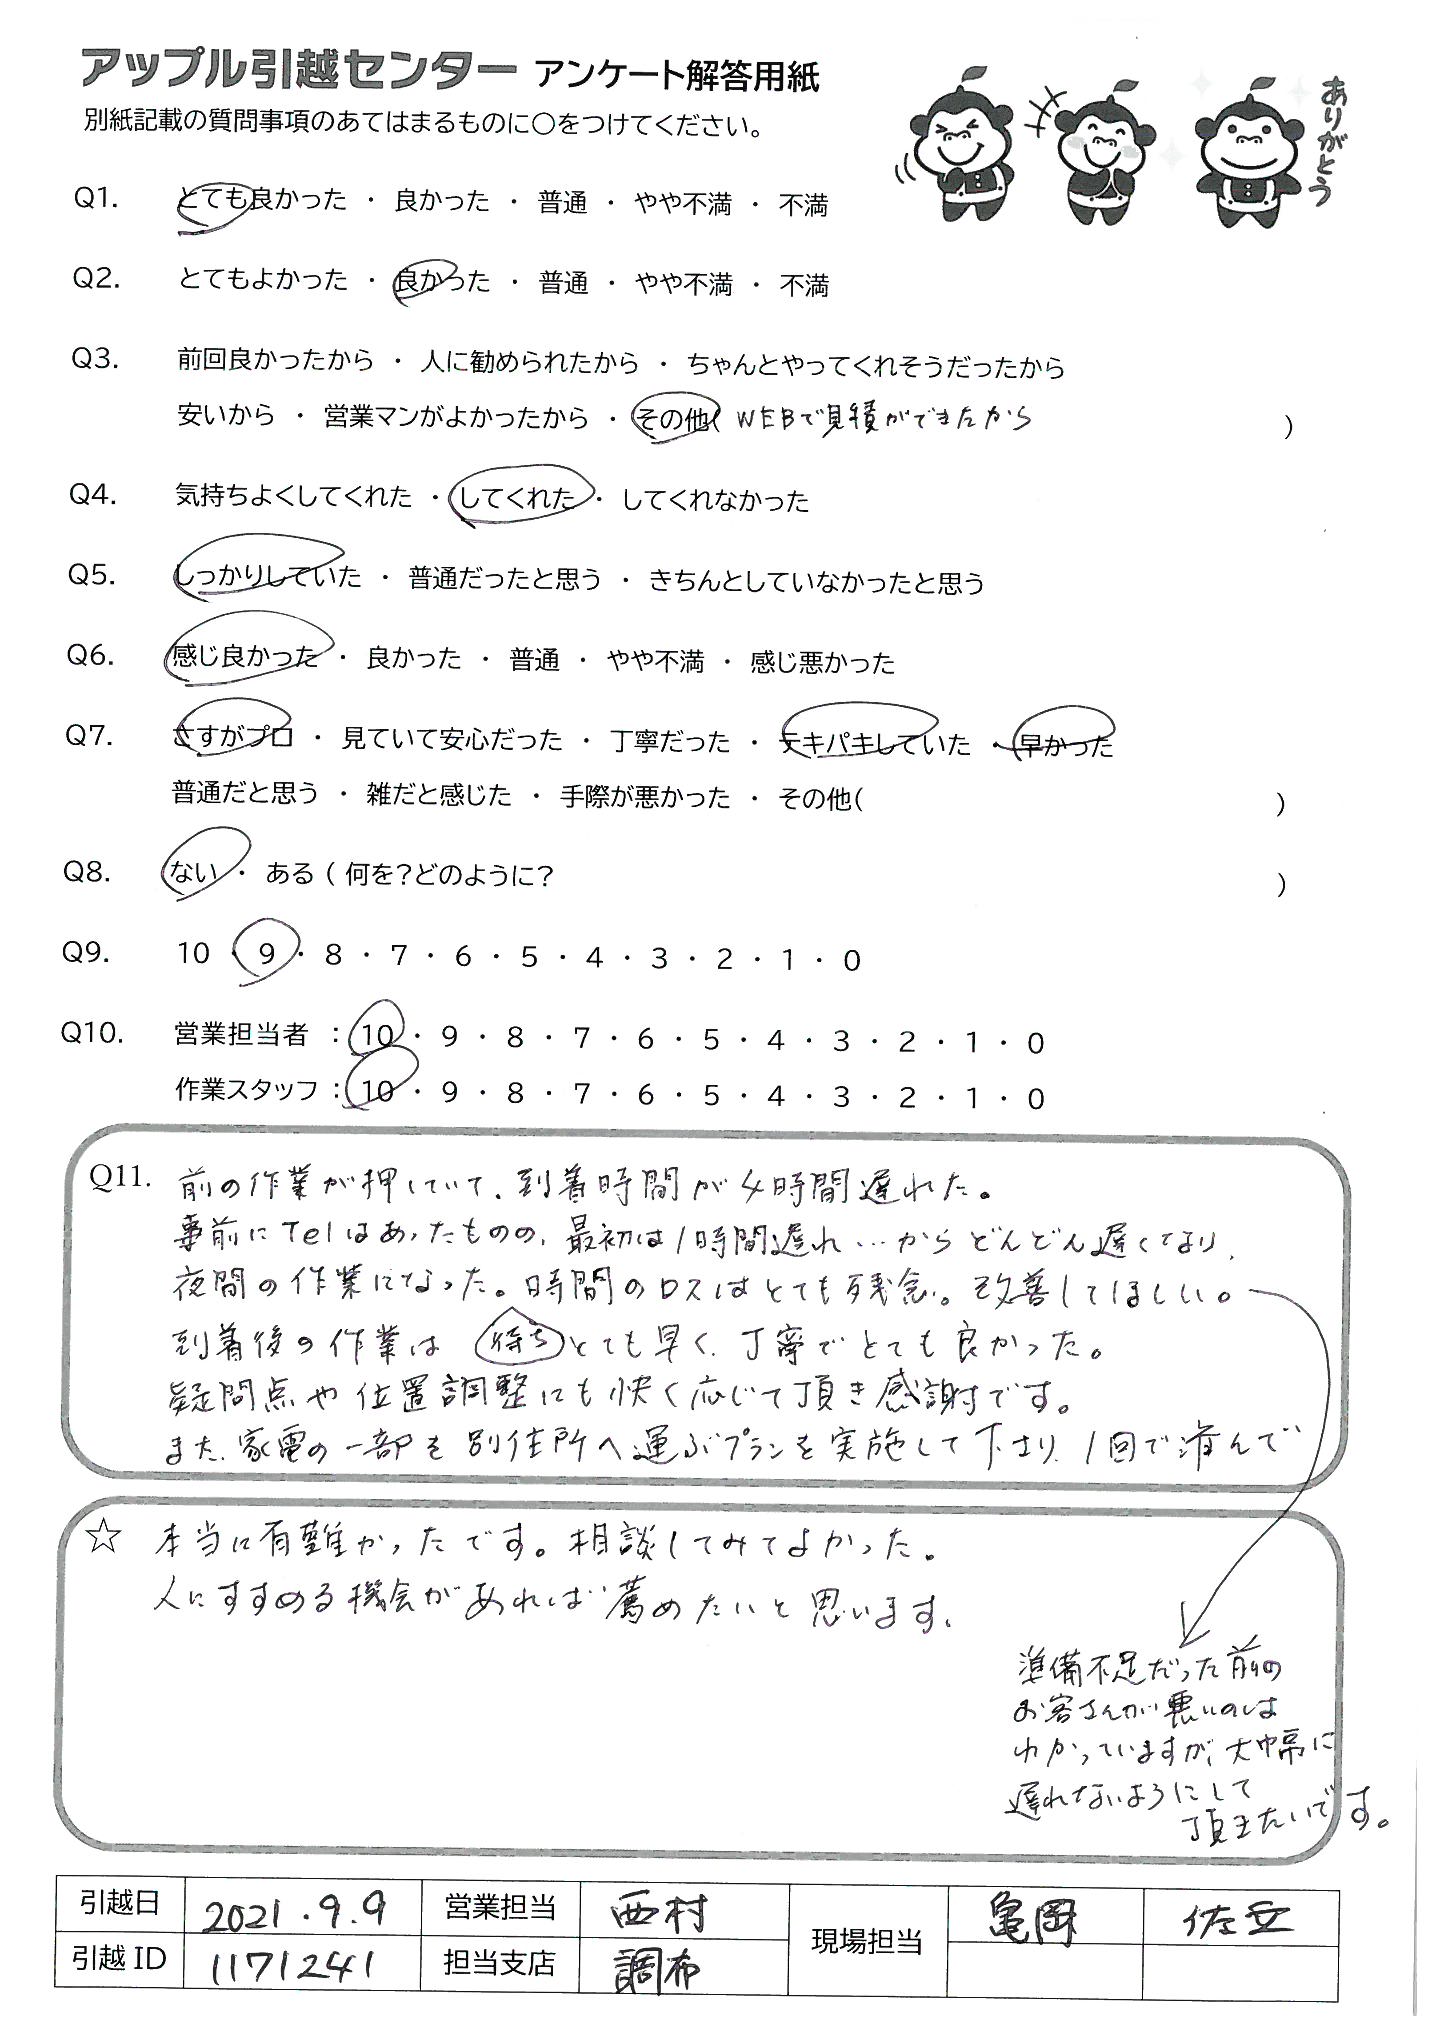 アップル引越センター アンケート解答用紙
別紙記載の質問事項のあてはまるものに○をつけてください。
ありがとう
Q1. とても良かった ・ 良かった ・ 普通 ・ やや不満 ・ 不満
Q2. とてもよかった ・ 良かった ・ 普通 ・ やや不満 ・ 不満
Q3. 前回良かったから ・ 人に勧められたから ・ ちゃんとやってくれそうだったから
安いから ・ 営業マンがよかったから ・ その他( WEBで見積ができたから )
Q4. 気持ちよくしてくれた ・ してくれた ・ してくれなかった
Q5. しっかりしていた ・ 普通だったと思う ・ きちんとしていなかったと思う
Q6. 感じ良かった ・ 良かった ・ 普通 ・ やや不満 ・ 感じ悪かった
Q7. さすがプロ ・ 見ていて安心だった ・ 丁寧だった ・ テキパキしていた ・ 早かった
普通だと思う ・ 雑だと感じた ・ 手際が悪かった ・ その他( )
Q8. ない ・ ある ( 何を?どのように? )
Q9. 10 ・ 9 ・ 8 ・ 7 ・ 6 ・ 5 ・ 4 ・ 3 ・ 2 ・ 1 ・ 0
Q10. 営業担当者 : 10 ・ 9 ・ 8 ・ 7 ・ 6 ・ 5 ・ 4 ・ 3 ・ 2 ・ 1 ・ 0
作業スタッフ : 10 ・ 9 ・ 8 ・ 7 ・ 6 ・ 5 ・ 4 ・ 3 ・ 2 ・ 1 ・ 0
Q11. 前の作業が押していて、到着時間が4時間遅れた。
事前にTelはあったものの、最初は1時間遅れ…からどんどん遅くなり、
夜間の作業になった。時間のロスはとても残念。改善してほしい。
到着後の作業は 待ち とても早く、丁寧でとても良かった。
疑問点や位置調整にも快く応じて頂き感謝です。
また、家電の一部を別住所へ運ぶプランを実施して下さり、1回で済んで
☆ 本当に有難かったです。相談してみてよかった。
人にすすめる機会があれば薦めたいと思います。
準備不足だった前の
お客さんが悪いのは
わかっていますが、大幅に
遅れないようにして
頂きたいです。
引越日 2021.9.9 営業担当 西村 現場担当 亀岡 佐立
引越ID 1171241 担当支店 調布